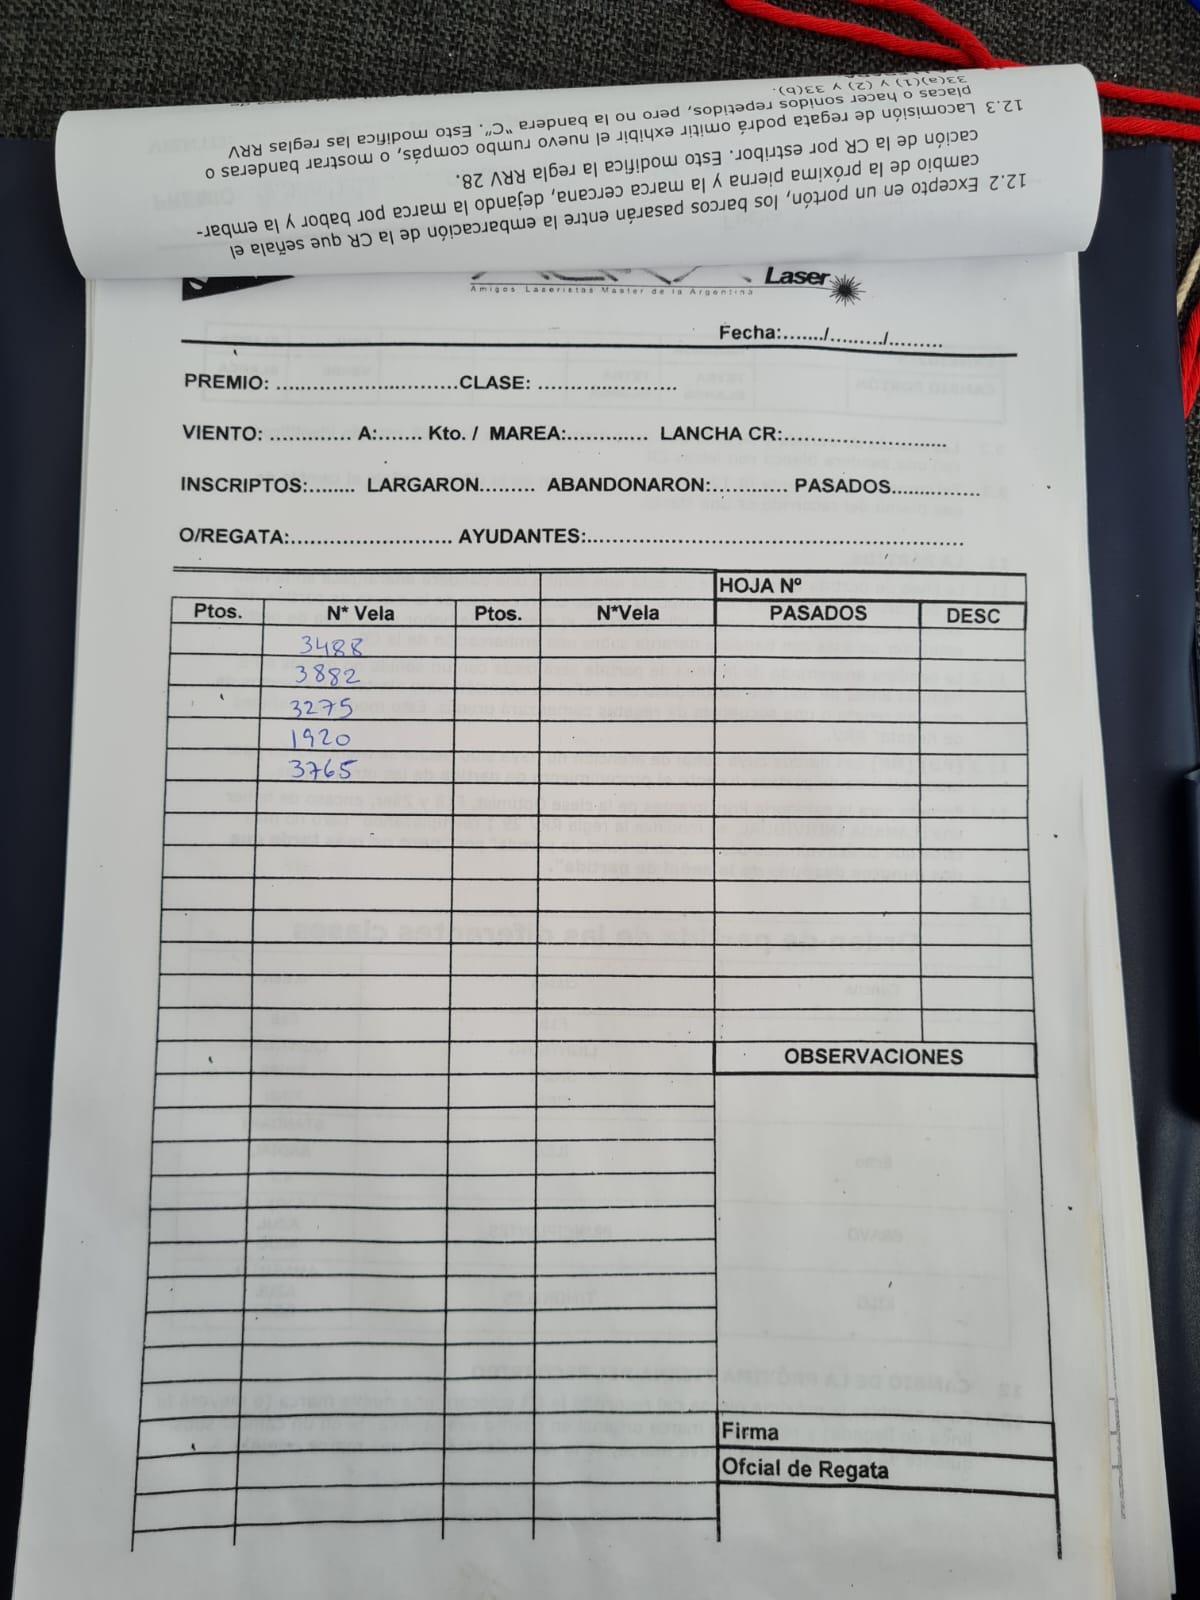 12.2 Excepto en un portón, los barcos pasarán entre la embarcación de la CR que señala el
cambio de la próxima pierna y la marca cercana, dejando la marca por babor y la embar-
cación de la CR por estribor. Esto modifica la regla RRV 28.
12.3 Lacomisión de regata podrá omitir exhibir el nuevo rumbo compás, o mostrar banderas o
placas o hacer sonidos repetidos, pero no la bandera "C". Esto modifica las reglas RRV
33(a)(1) y (2) y 33(b).
Laser
Amigos Laseristas Master de la Argentina
Fecha:......./........./.........
PREMIO: ..............................CLASE: .......................
VIENTO: ............. A:....... Kto. / MAREA:............. LANCHA CR:...........................
INSCRIPTOS:........ LARGARON......... ABANDONARON:............ PASADOS...............
O/REGATA:.......................... AYUDANTES:..............................................................
HOJA Nº
Ptos. N* Vela Ptos. N*Vela PASADOS DESC
3488
3882
3275
1920
3765
OBSERVACIONES
Firma
Ofcial de Regata